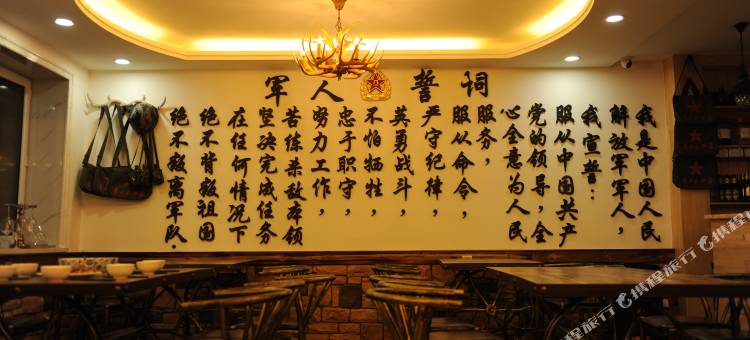 军人誓词
我是中国人民
解放军军人，
我宣誓：
服从中国共产
党的领导，全
心全意为人民
服务，
服从命令，
严守纪律，
英勇战斗，
不怕牺牲，
忠于职守，
努力工作，
苦练杀敌本领
坚决完成任务
在任何情况下
绝不背叛祖国
绝不叛离军队．
携程旅行
携程旅行